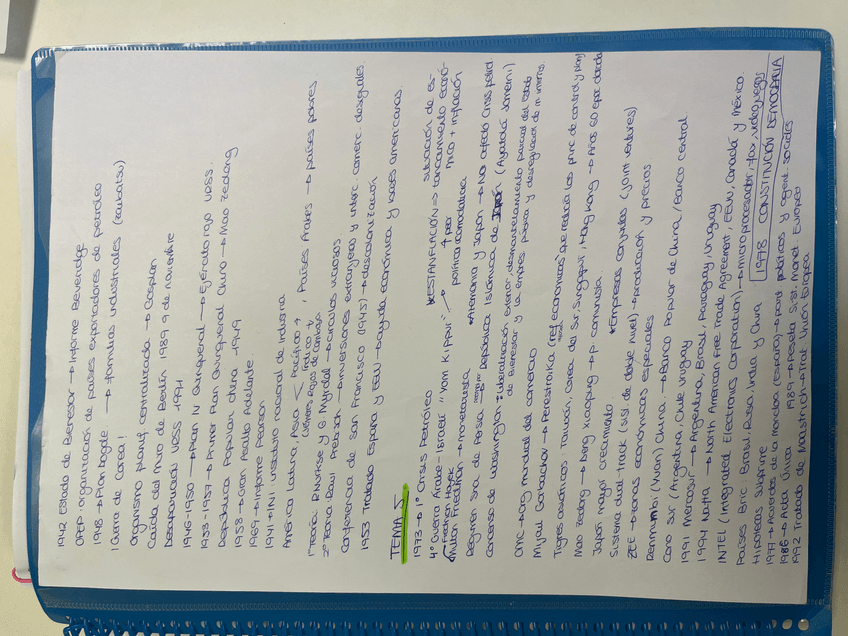 1942 Estado de Bienestar → Informe Beveridge
OPEP: organización de países exportadores de petróleo
1948 → Plan Dogde → familias industriales (zaibatsu)
¡Guerra de Corea!
Organismo planif centralizada → Gosplan
Caída del muro de Berlín 1989 9 de noviembre
Desaparición URSS 1991
1946-1950 → Plan IV Quinquenal → Ejército rojo URSS.
1953-1957 → Primer Plan Quinquenal Chino → Mao Zedong
República Popular China 1949
1958 → Gran Asalto Adelante
1969 → Informe Pearson
1941 → INI instituto nacional de industria
América Latina, Asia < Pacífico +, Índico +, Países Árabes → países pobres
(Jémeres Rojos de Camboya)
1ª Teoría: R Nurkse y G Myrdal → círculos viciosos
2ª Teoría: Raúl Prebisch → inversiones extranjeras y interc. comerc. desiguales
Conferencia de San Francisco (1945) → descolonización
1953 Tratado España y EEUU → ayuda económica y bases americanas.
TEMA 5
1973 → 1ª Crisis Petróleo
4ª Guerra Árabe-Israelí "Yom Kippur"
*ESTANFLACIÓN ⇒ situación de es-
tancamiento econó-
mico + inflación
Friedrich Hayek
Milton Friedman → monetarista
política acomodaticia
*Alemania y Japón → No afectó crisis petról
Régimen Sha de Persia → República Islámica de Irán (Ayatolá Jomeini)
Consenso de Washington: liberalización exterior, desmantelamiento parcial del Estado
de Bienestar y la empresa pública y desregulación de m interns.
OMC → Org mundial del comercio
Mijail Gorbachov → Perestroika (ref económicas que reducía los princ de control y planif
Tigres asiáticos: Taiwán, Corea del Sur, Singapur, Hong Kong → Años 60 époc dorada
Mao Zedong → Deng Xiaoping → p. comunista.
Japón mayor crecimiento
*Empresas conjuntas (joint ventures)
Sistema dual track (sist de doble nivel) → producción y precios
ZEE → zonas económicas especiales
Renminbi (Yuan) China. → Banco Popular de China / Banco central
Cono sur (Argentina, Chile Uruguay
1991 Mercosur → Argentina, Brasil, Paraguay, Uruguay
1994 Nafta → North American Free Trade Agreement, EEUU, Canadá y México.
INTEL (Integrated Electronics Corporation) → microprocesador, fax, videojuegos
Países Bric: Brasil, Rusia, India y China
1978 CONSTITUCIÓN DEMOCRACIA
Hipotecas subprime
1977 → Acuerdos de la Moncloa (España) → part. políticos y agent sociales
1986 → Acta Única
1989 → Peseta Sist. Monet Europeo
1992 Tratado de Maastricht → Trat Unión Europea